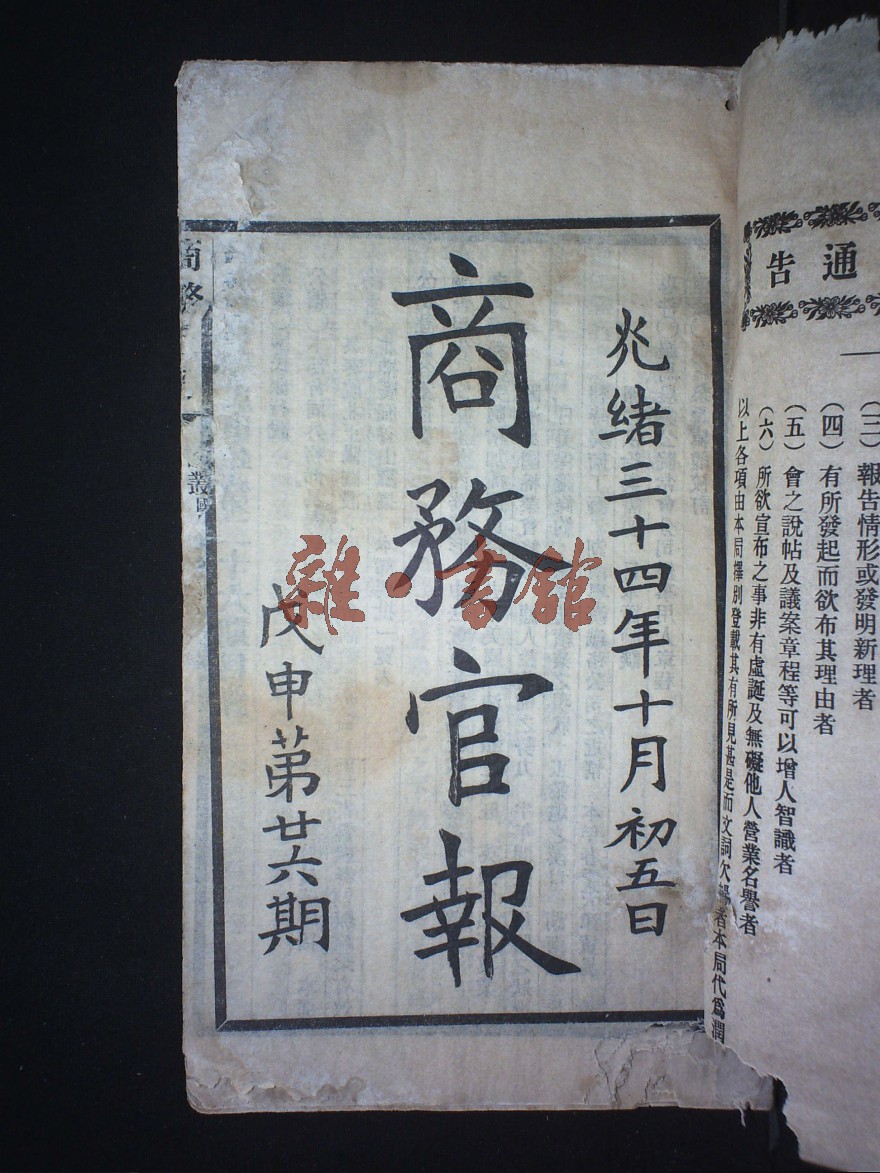 通告
（三）報告情形或發明新理者
（四）有所發起而欲布其理由者
（五）會之說帖及議案章程等可以增人智識者
（六）所欲宣布之事非有虛誕及無礙他人營業名譽者
以上各項由本局擇別登載其有所見甚是而文詞欠暢者本局代爲潤
光緒三十四年十月初五日
商務官報
戊申苐廿六期
商務
叢國
雜·書館